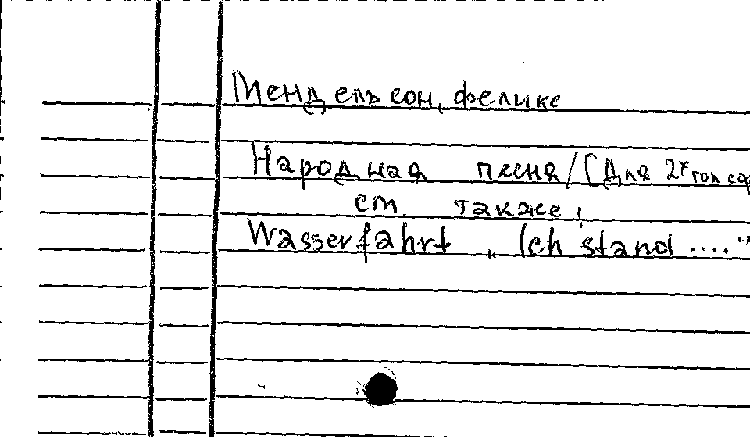 Мендельсон, Феликс
Народная песня / [Для 2х голосо
см. также:
Wasserfahrt „Ich stand ...."